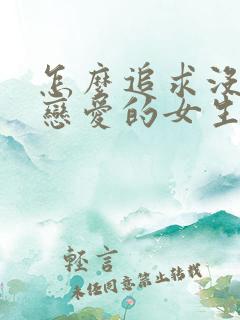 怎麼追求沒
戀愛的女生
輕言
未經同意禁止轉載